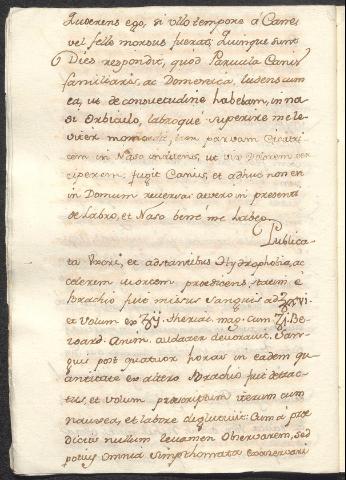 Quærens ego, si ullo tempore a Canes
vel fele morsus fuerat; Quinque sunt
Dies respondit, quod Parucia Canis
familiaris, ac Domenica, ludens cum
ea, ut de consuetudine habebam, in na-
si Orbiculo, labroque superire me le-
viter momordit, tam parvam Cicatri
cem in Naso inurens, ut vix Dolorem per
ciperem. fugit Canis, et adhuc non en
in Domum reversus avero in presenti
de Labro, et Naso bene me habeo.
Publica-
ta Uxori, et adstantibus Hydrophobia, ac
celerem mortem prædicens, statim è
Brachio fuit missus Sanguis ad ℥VI.
et Volum ex ʒij. Theriac. mag. cum ʒj. Be-
zoard. Anim. audacter devoravit. San-
guis post quatuor horas in eadem qu
antitate ex altero Brachio fuit detrac-
tus, et volum præscriptum iterum cum
nausea, et labore deglutivit: Cum à præ
dictis nullum levamen Observarem, sed
potius omnia Simpthomata exacervari